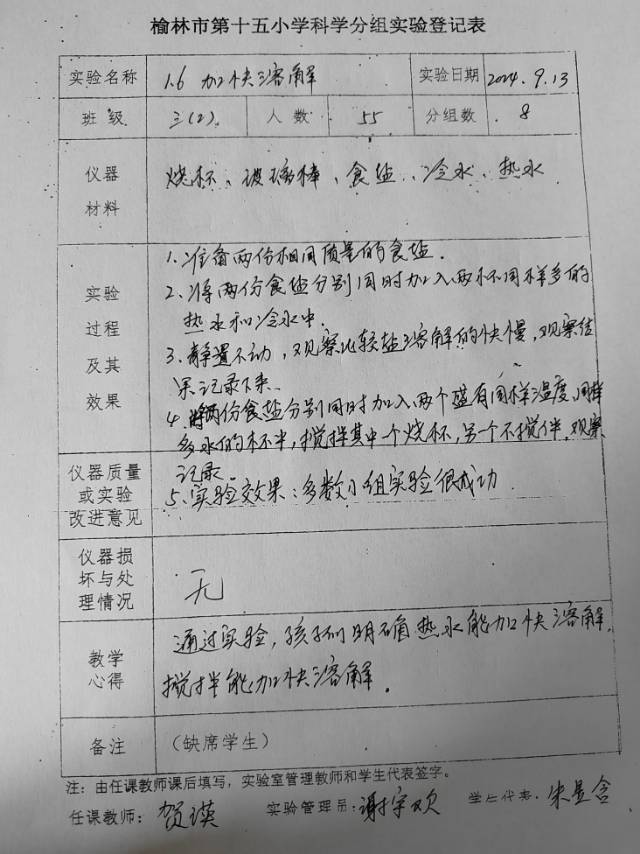 榆林市第十五小学科学分组实验登记表
实验名称 1.6 加快溶解 实验日期 2024.9.13
班级 三(2) 人数 55 分组数 8
仪器材料 烧杯、玻璃棒、食盐、冷水、热水
实验过程及其效果
1.准备两份相同质量的食盐.
2.将两份食盐分别同时加入两杯同样多的
热水和冷水中.
3.静置不动,观察比较盐溶解的快慢,观察结
果记录下来.
4.将两份食盐分别同时加入两个盛有同样温度、同样
多水的杯中,搅拌其中一个烧杯,另一个不搅伴.观察
记录。
5.实验效果:多数小组实验很成功.
仪器质量或实验改进意见
仪器损坏与处理情况 无
教学心得
通过实验,孩子们明确热水能加快溶解,
搅拌能加快溶解.
备注 (缺席学生)
注:由任课教师课后填写,实验室管理教师和学生代表签字。
任课教师:贺瑛 实验管理员:谢宇欢 学生代表:朱